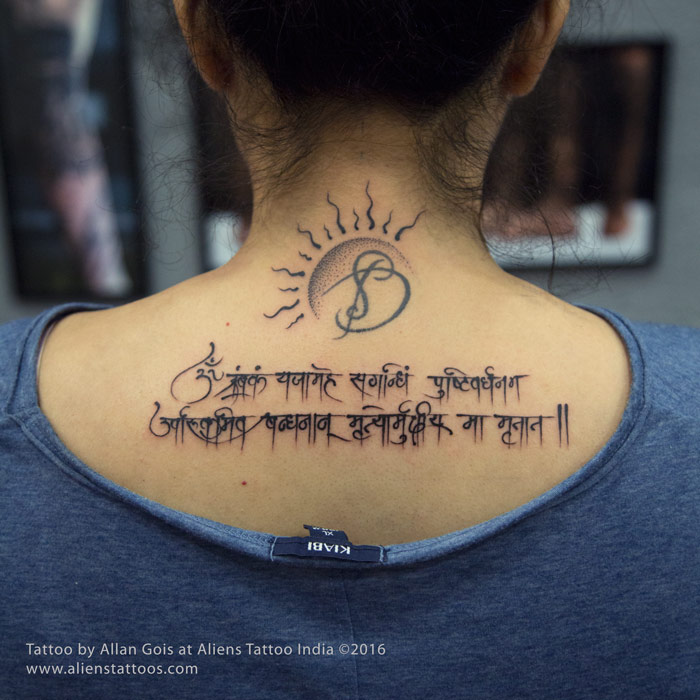 ॐ त्रंबकं यजामहे सगन्धिं पुष्टिवर्धनम
उर्वारुकमिव बन्धनान् मृत्योर्मुक्षीय मा मृतात ||
XL
KIABI
Tattoo by Allan Gois at Aliens Tattoo India ©2016
www.alienstattoos.com